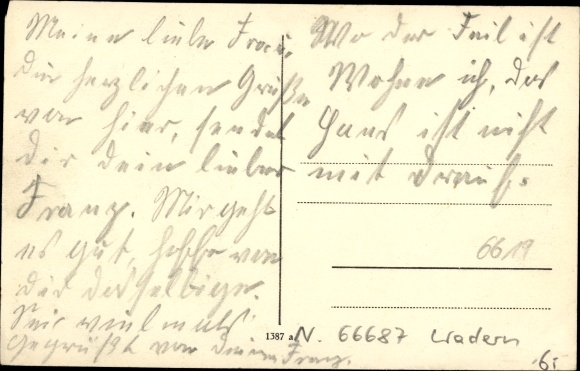 Meine liebe Frau,
die herzlichen Grüße
von hier, sendet
dir dein lieber
Franz. Mir geht
es gut, hoffe von
dir dasselbige.
Sei vielmals
Gegrüßt von deinem Franz.
Wo der Feil ist
Wohne ich, das
Haus ist nicht
mit drauf.
6619
1387 a
N. 66687 Wadern